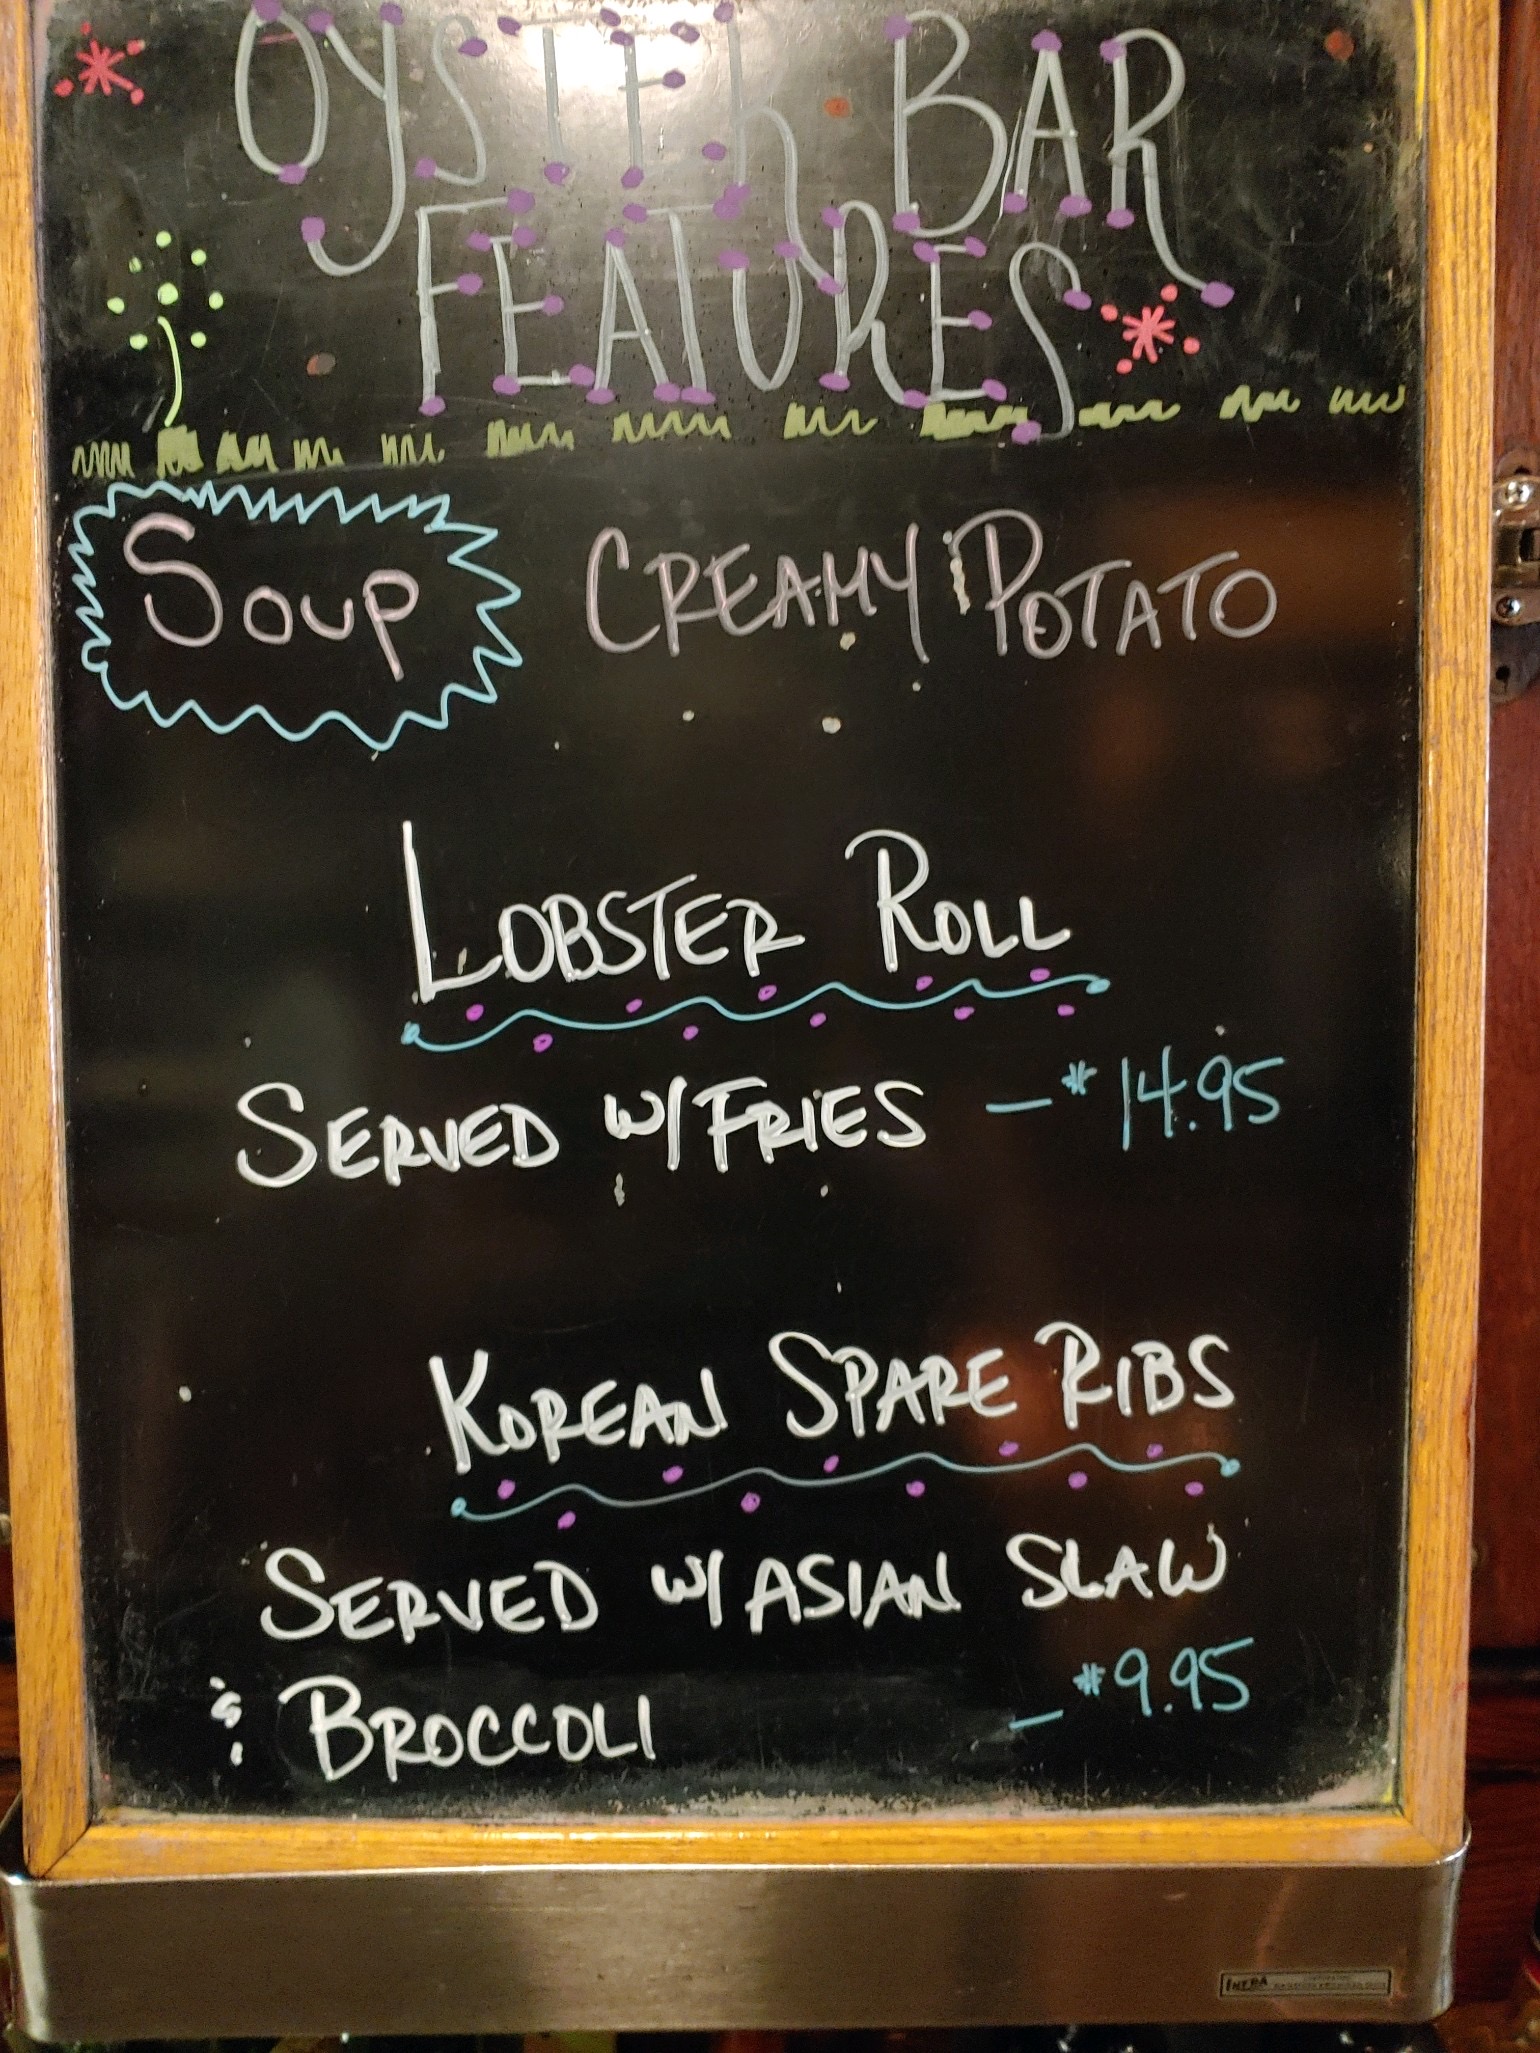 OYSTER BAR
FEATURES
SOUP CREAMY POTATO
LOBSTER ROLL
SERVED W/ FRIES - $14.95
KOREAN SPARE RIBS
SERVED W/ ASIAN SLAW
& BROCCOLI - $9.95